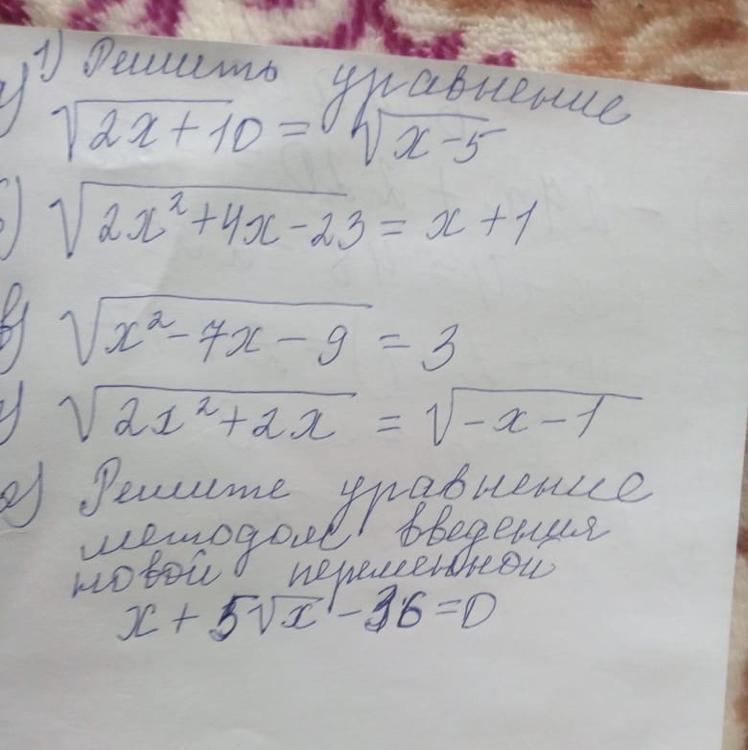 1) Решить уравнение
√2x+10 = √x-5
б) √2x²+4x-23 = x+1
в) √x²-7x-9 = 3
√2x²+2x = √-x-1
2) Решите уравнение
методом введения
новой переменной
x+5√x-36=0